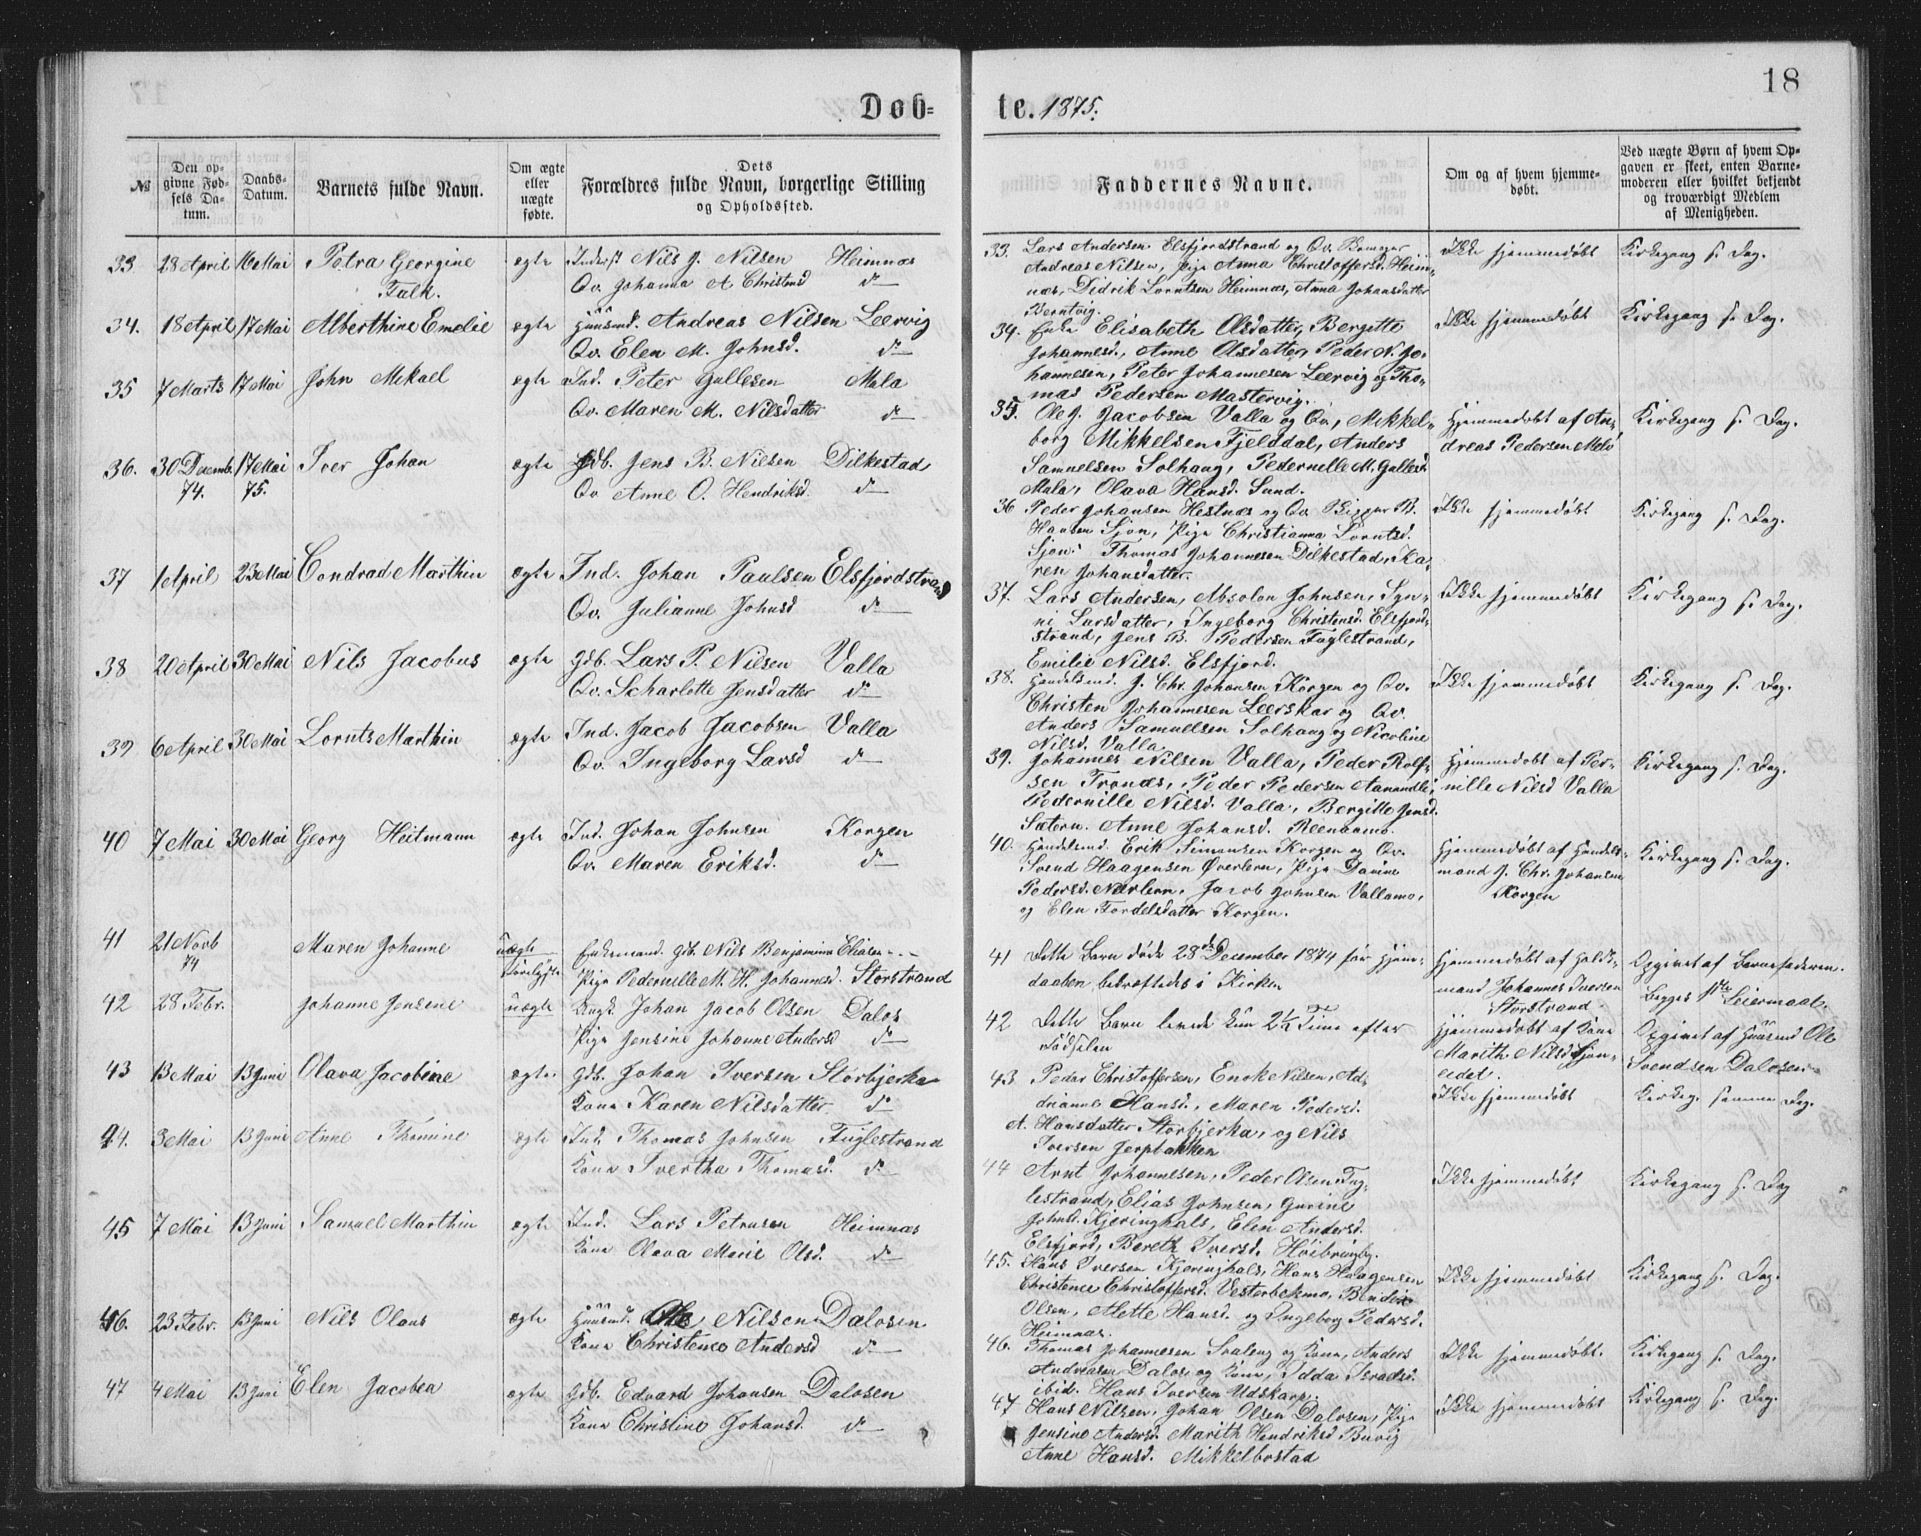 18
Døb=
te. 1875.
№
Den op-
givne Fød-
sels Da-
tum.
Daabs-
Datum.
Barnets fulde Navn.
Om ægte
eller
uægte
fødte.
Dets
Forældres fulde Navn, borgerlige Stilling
og Opholdssted.
Faddernes Navne.
Om og af hvem hjemme-
døbt.
Ved uægte Børn af hvem Op-
gaven er skeet, enten Barne-
moderen eller hvilket bekjendt
og troværdigt Medlem
af Menigheden.
33 28 April 16 Mai Petra Georgine ægte Inderst Nils J. Nilsen Heimnæs
Falk. Qv. Johanna A Christensd do
34. 18 April 17 Mai Alberthine Emelie ægte Huusmd. Andreas Nilsen Leervig
Qv. Elen M. Johnsd. do
35 7 Marts 17 Mai John Mikael ægte Ind. Peter Gullesen Mula
Qv. Maren M. Nilsdatter do
36. 30 Decemb. 17 Mai Iver Johan ægte Gdb. Jens B. Nilsen Dilkestad
74. 75. Qv Anne O. Hendriksd. do
37 1 April 23 Mai Condrad Marthin ægte Ind. Johan Paulsen Elsfjordstrand
Qv. Julianne Johnsd do
38 20 April 30 Mai Nils Jacobus ægte Gdb. Lars P. Nilsen Valla
Qv. Scharlotte Jensdatter do
39 6 April 30 Mai Lornts Marthin ægte Ind. Jacob Jacobsen Valla
Qv. Ingeborg Larsd do
40 7 Mai 30 Mai Georg Heitmann ægte Ind. Johan Johnsen Korgen
Qv. Maren Eriksd. do
41 21 Novb Maren Johanne uægte Enkemand. Gdb. Nils Benjamin Eliasen
74 Pige Pedernille M. H. Johannesd. Storstrand
42 28 Febr. Johanne Jensine uægte Ungk. Johan Jacob Olsen Dalos
Pige Jensine Johanne Andersd do
43 13 Mai 13 Juni Olava Jacobine ægte Gdb. Johan Iversen Storbjerka
Kone Karen Nilsdatter do
44. 3 Mai 13 Juni Anne Thomine ægte Ind. Thomas Johnsen Fuglestrand
Kone Ivertha Thomasd. do
45 7 Mai 13 Juni Samuel Marthin ægte Ind. Lars Petersen Heimnæs
Kone Olava Marie Olsd. do
46. 23 Febr. 13 Juni Nils Olaus ægte Huusmd. Ole Nilsen Dalosen
Kone Christence Andersd do
47 4 Mai 13 Juni Elen Jacobea ægte Gdb. Edvard Johansen Dalosen
Kone Christine Johansd. do
33. Lars Andersen Elsfjordstrand og Qv.
Andreas Nilsen, Pige Anna Christoffersd. Heim-
næs, Didrik Lorntsen Heimnæs, Anna Johansdatter
Berntvig.
Ikke hjemmedøbt
Kirkegang s. Dag.
34. Enke Elisabeth Olsdatter, Bergitte
Johannesd., Anne Olsdatter, Peder N. Jo-
hannesen, Peter Johannesen Leervig og Tho-
mas Pedersen Mastervig.
Ikke hjemmedøbt
Kirkegang s. Dag.
35. Ole J. Jacobsen Valla og Qv, Mikkel-
borg Mikkelsen Fjelddal, Anders
Samuelsen Solhaug, Pedernille M. Gullesd.
Mula, Olava Hansd. Sund.
Hjemmedøbt af An-
dreas Pedersen Mela
Kirkegang s. Dag.
36 Peder Johansen Hestnæs og Qv. B.
Hansen Sjøn, Pige Christianna Lorntsd.
Sjøn. Thomas Johannesen Dilkestad, Ka-
ren Johansdatter.
Ikke hjemmedøbt
Kirkegang s. Dag.
37. Lars Andersen, Absolon Johnsen, Syn-
ni Larsdatter, Ingeborg Christensd. Elsfjord-
strand, Jens B. Pedersen Fuglestrand,
Emilie Nilsd. Elsfjord.
Ikke hjemmedøbt
Kirkegang s. Dag.
38. Handelsmd. J. Chr. Johansen Korgen og Qv.
Christen Johannesen Leerskar og Qv.
Anders Samuelsen Solhaug og Nicoline
Nilsd. Valla
Ikke hjemmedøbt
Kirkegang s. Dag.
39. Johannes Nilsen Valla, Peder Rolf-
sen Tronæs, Peder Pedersen Aanondli,
Pedernille Nilsd. Valla, Bergitte Jensd.
Sætern. Anne Johansd. Reenaamo.
Hjemmedøbt af Per-
nille Nilsd Valla
Kirkegang s. Dag.
40. Handelsmd. Erik Simonsen Korgen og Qv.
Svend Haagensen Øverlern, Pige Davine
Pedersd. Nerlern, Jacob Johnsen Vallamo,
og Elen Fordelsdatter Korgen.
Hjemmedøbt af Handels-
mand J. Chr. Johansen
Korgen
Kirkegang s. Dag.
41 Dette Barn døde 28de December 1874 før Hjem-
daaben bekræftedes i Kirken
Hjemmedøbt af Holds-
mand Johannes Iversen
Storstrand
Opgivet af Barnefaderen.
Begges 1ste Leiermaal.
42 Dette Barn levede kun 2½ Time efter
Fødselen
Hjemmedøbt af Kone
Marith Nilsd. Sjøn-
eidet.
Opgivet af Huusmd Ole
Svendsen Dalosen
43 Peder Christoffersen, Enok Nilsen, Ad-
rianne Hansd., Maren Pedersd.
A. Hansdatter Storbjerka, og Nils
Iversen Jerpbakken
Ikke hjemmedøbt
Kirkeg. samme Dag.
44 Arnt Johannesen, Peder Olsen Fug-
lestrand, Elias Johnsen, Gurine
Johnsd. Kjeringhals, Elen Andersd.
Elsfjord, Bereth Iversd. Høibrinby.
Ikke hjemmedøbt
Kirkegang s. Dag
45. Hans Iversen Kjeringhals, Hans Haagensen
Christence Christoffersd. Vesterbekmo, Bendix
Olsen, Mette Hansd. og Ingeborg Pedersd.
Heimnæs.
Ikke hjemmedøbt
Kirkegang s. Dag.
46. Thomas Johannesen Svaleng og Kone, Anders
Andreasen Dalos og Kone, Idda Israelsd.
ibid. Hans Iversen Udskarp.
Ikke hjemmedøbt.
Kirkegang s. Dag.
47 Hans Nilsen, Johan Olsen Dalosen, Pige
Jensine Andersd. Marith Hendriksd Buvig
Anne Hansd. Mikkelbostad
Ikke hjemmedøbt
Kirkegang s. Dag.